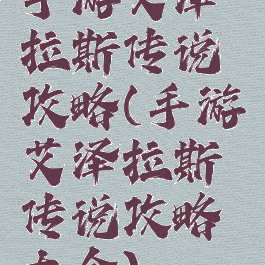 手游艾泽
拉斯传说
攻略(手游
艾泽拉斯
传说攻略
大全)